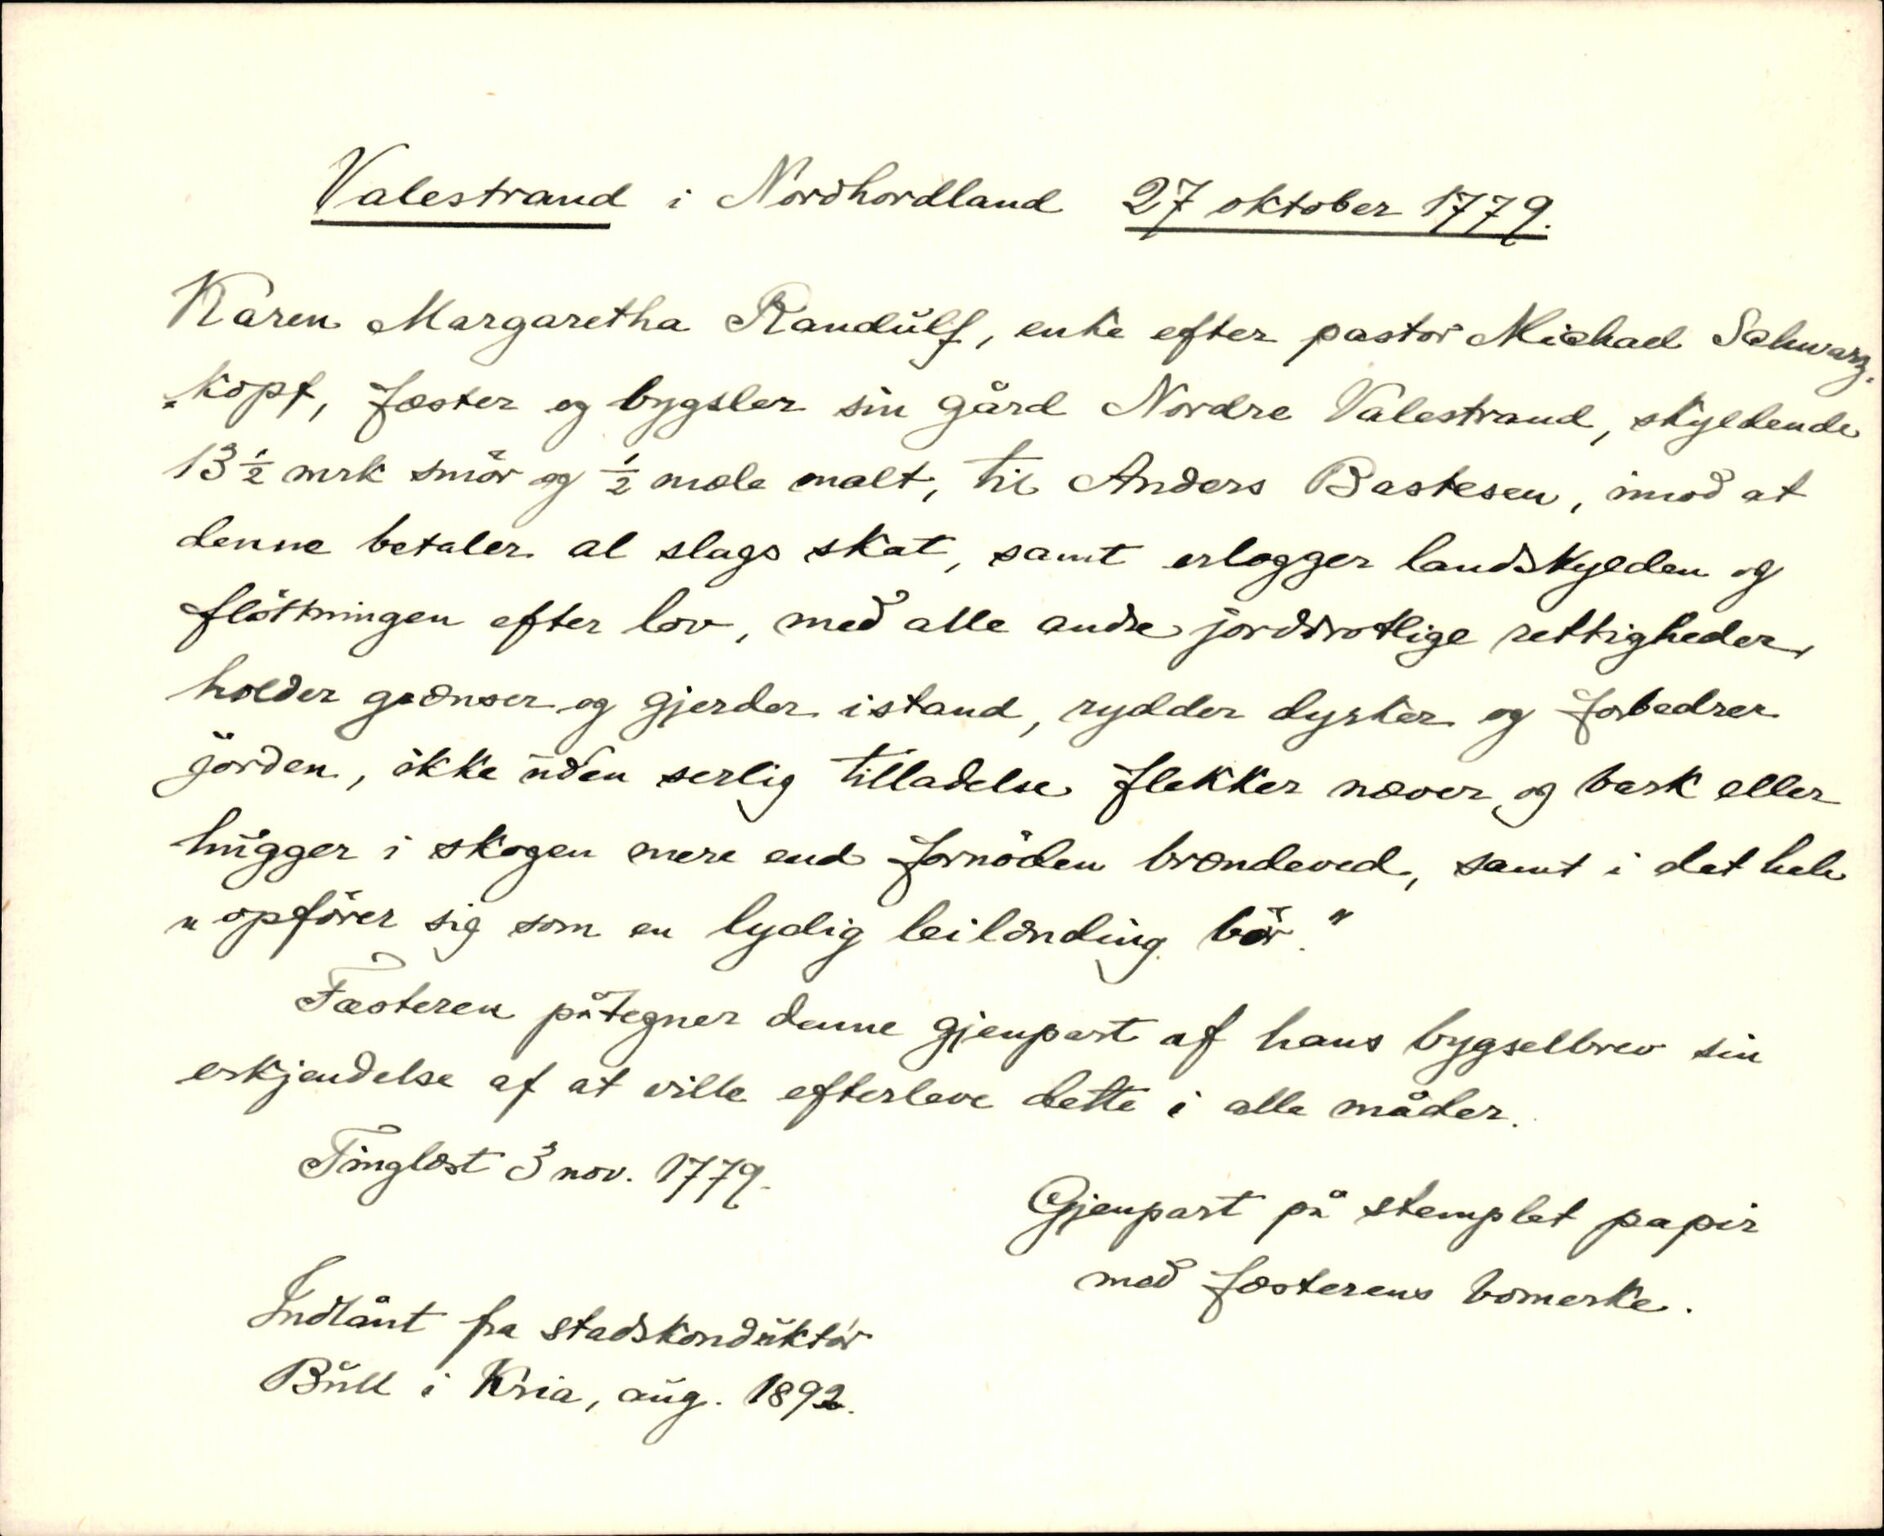 Valestrand i Nordhordland 27 oktober 1779.
Karen Margaretha Randulf, enke efter pastor Michael Schwarz-
kopf, fæster og bygsler sin gård Nordre Valestrand, skyldende
13 1/2 mrk smör og 1/2 mæle malt, til Anders Bastesen, imod at
denne betaler al slags skat, samt erlægger landskylden og
flötningen efter lov, med alle andre jorddrotlige rettigheder,
holder grænser og gjerder istand, rydder dyrker og forbedrer
jorden, ikke uden serlig tilladelse flekker næver og bark eller
hugger i skogen mere end fornöden brændeved, samt i det hele
"opförer sig som en lydig leilænding bör."
Fæsteren påtegner denne gjenpart af hans bygselbrev sin
erkjendelse af at ville efterleve dette i alle måder.
Tinglæst 3 nov. 1779.
Gjenpart på stemplet papir
med fæsterens bomerke.
Indlånt fra stadskonduktör
Bull i Kria, aug. 1892.